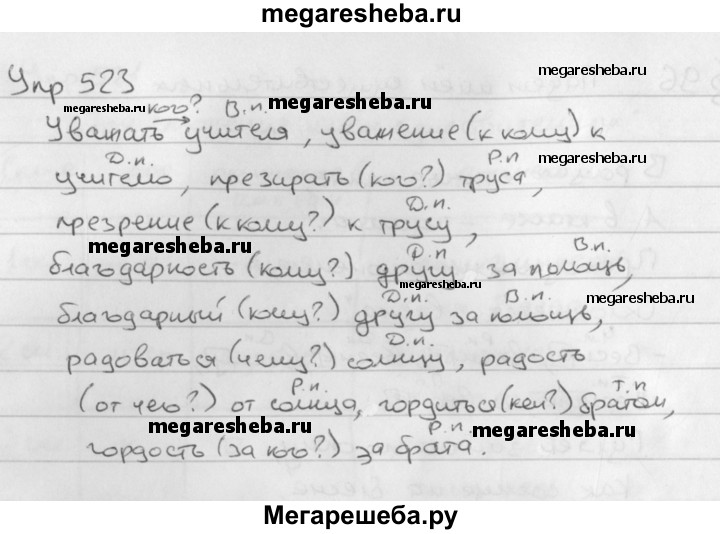 megaresheba.ru
Упр 523
megaresheba.ru
megaresheba.ru кого? В.п. megaresheba.ru
Уважать учителя, уважение (к кому) к
Д.п. Р.п megaresheba.ru
учителю, презирать (кого?) труса,
Д.п.
презрение (к кому?) к трусу,
megaresheba.ru Д.п В.п.
благодарность (кому?) другу за помощь,
megaresheba.ru
Д.п. В.п. megaresheba.ru
благодарный (кому?) другу за помощь,
Д.п.
радоваться (чему?) солнцу, радость
Р.п. Т.п
(от чего?) от солнца, гордиться (кем?) братом,
megaresheba.ru Р.п. megaresheba.ru
гордость (за кого?) за брата.
Мегарешеба.ру